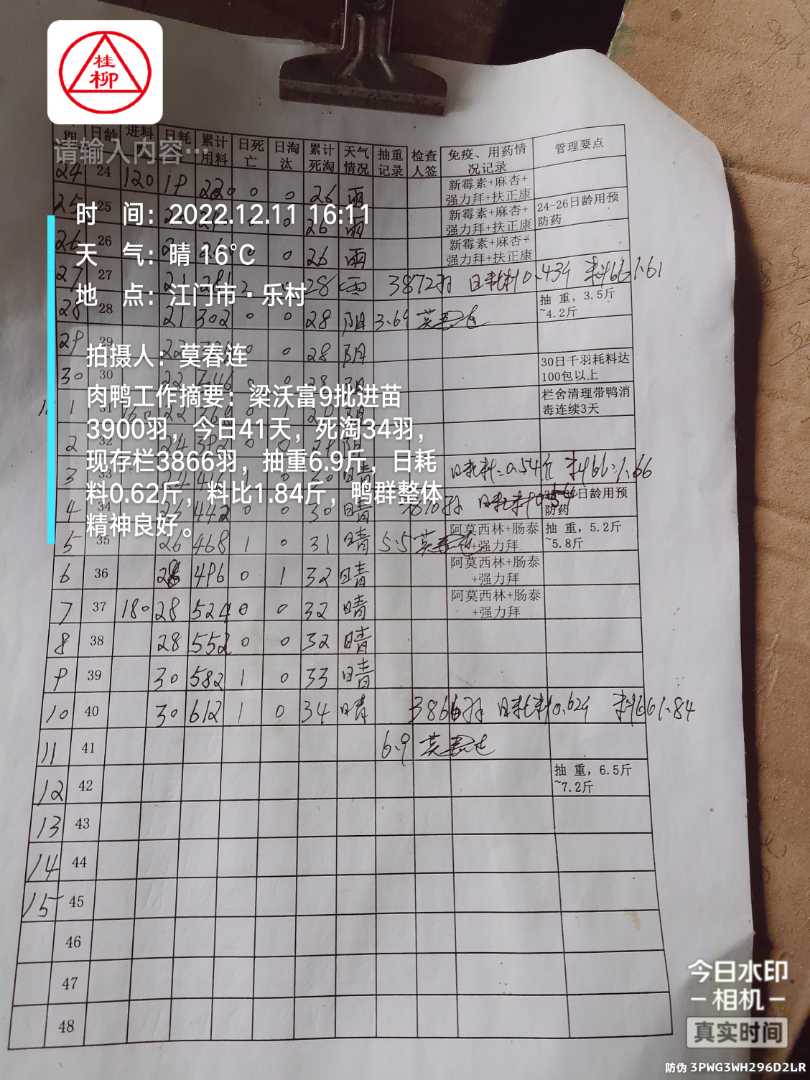 桂
柳
请输入内容…
时 间：2022.12.11 16:11
天 气：晴 16℃
地 点：江门市·乐村
拍摄人：莫春连
肉鸭工作摘要：梁沃富9批进苗
3900羽，今日41天，死淘34羽，
现存栏3866羽，抽重6.9斤，日耗
料0.62斤，料比1.84斤，鸭群整体
精神良好。
日龄 进料 日耗 累计用料 日死亡 日淘汰 累计死淘 天气情况 抽重记录 检查人签 免疫、用药情况记录 管理要点
24 24 120 19 220 0 0 26 雨 新霉素+麻杏+强力拜+扶正康
25 25 26 雨 新霉素+麻杏+强力拜+扶正康 24-26日龄用预防药
26 26 26 雨 新霉素+麻杏+强力拜+扶正康
27 27 21 281 28 雨 3872羽
28 28 21 302 0 0 28 阴 3.69 抽重，3.5斤~4.2斤
29 29 28 阴
30 30 28 阴 30日千羽耗料达100包以上
1 31 栏舍清理带鸭消毒连续3天
2 32
3 33 日耗料:0.54斤 1.66
4 34 26 442 0 0 30 晴 日龄用预防药
5 35 26 468 1 0 31 晴 5.5 阿莫西林+肠泰+强力拜 抽重，5.2斤~5.8斤
6 36 28 496 0 1 32 晴 阿莫西林+肠泰+强力拜
7 37 180 28 524 0 0 32 晴 阿莫西林+肠泰+强力拜
8 38 28 552 0 0 32 晴
9 39 30 582 1 0 33 晴
10 40 30 612 1 0 34 晴 3866羽 日耗料0.62斤 1.84
11 41 6.9 莫春连
12 42 抽重，6.5斤~7.2斤
13 43
14 44
15 45
46
47
48
今日水印
相机
真实时间
防伪 3PWG3WH296D2LR